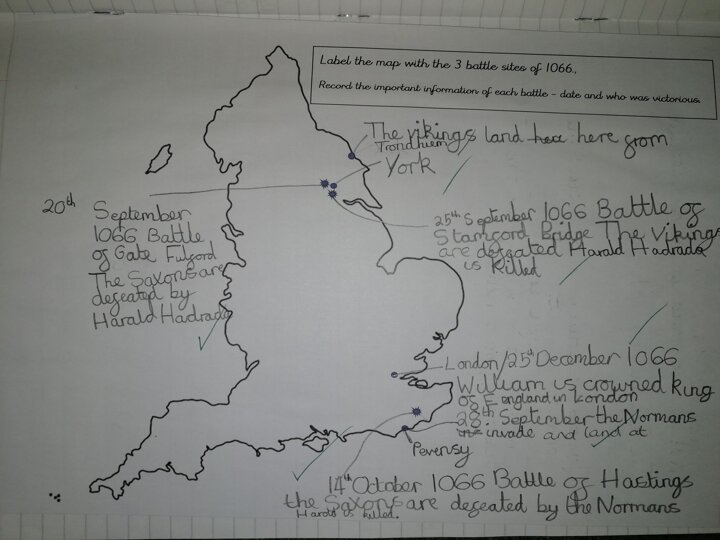 Label the map with the 3 battle sites of 1066.,
Record the important information of each battle - date and who was victorious.
The vikings land hea here from
Trondhiem
York
20th September
1066 Battle
of Gate Fulford
The Saxons are
defeated by
Harald Hadrada
25th September 1066 Battle of
Stamford Bridge The Vikings
are defeated Harald Hadrada
is Killed
London/25th December 1066
William is crowned king
of England in London
28th September the Normans
invade and land at
Pevensy
14th October 1066 Battle of Hastings
the Saxons are defeated by the Normans
Harold is killed.